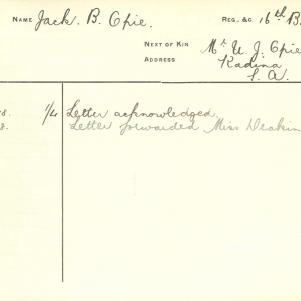 NAME Jack. B. Opie. REG. &C. 16th B
NEXT OF KIN Mr U. J. Opie
ADDRESS Kadina
S. A.
8. 1/4 Letter acknowledged.
8. Letter forwarded Miss Deakin